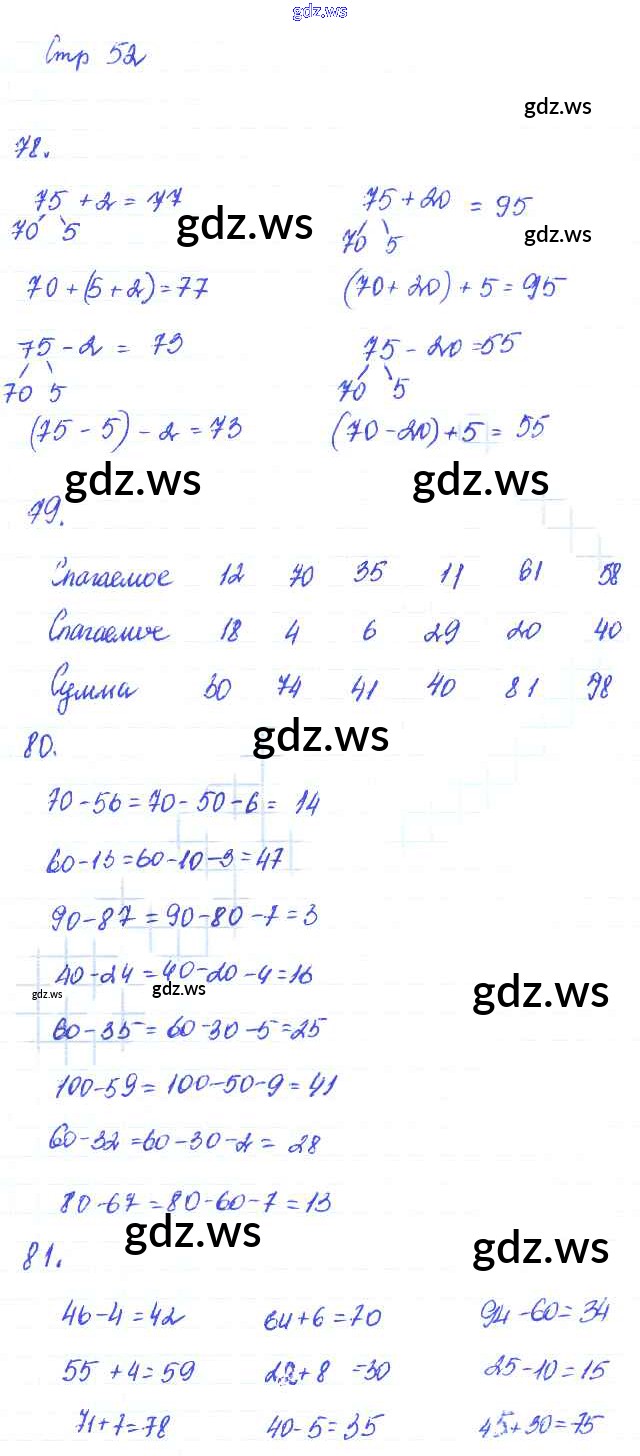 gdz.ws
Стр 52
gdz.ws
78.
75 + 2 = 77 75 + 20 = 95
70 5 gdz.ws 70 5 gdz.ws
70 + (5 + 2) = 77 (70 + 20) + 5 = 95
75 - 2 = 73 75 - 20 = 55
70 5 70 5
(75 - 5) - 2 = 73 (70 - 20) + 5 = 55
gdz.ws gdz.ws
79.
Слагаемое 12 70 35 11 61 58
Слагаемое 18 4 6 29 20 40
Сумма 30 74 41 40 81 98
gdz.ws
80.
70 - 56 = 70 - 50 - 6 = 14
60 - 13 = 60 - 10 - 3 = 47
90 - 87 = 90 - 80 - 7 = 3
40 - 24 = 40 - 20 - 4 = 16
gdz.ws gdz.ws gdz.ws
60 - 35 = 60 - 30 - 5 = 25
100 - 59 = 100 - 50 - 9 = 41
60 - 32 = 60 - 30 - 2 = 28
80 - 67 = 80 - 60 - 7 = 13
gdz.ws gdz.ws
81.
46 - 4 = 42 64 + 6 = 70 94 - 60 = 34
55 + 4 = 59 22 + 8 = 30 25 - 10 = 15
71 + 7 = 78 40 - 5 = 35 45 + 30 = 75